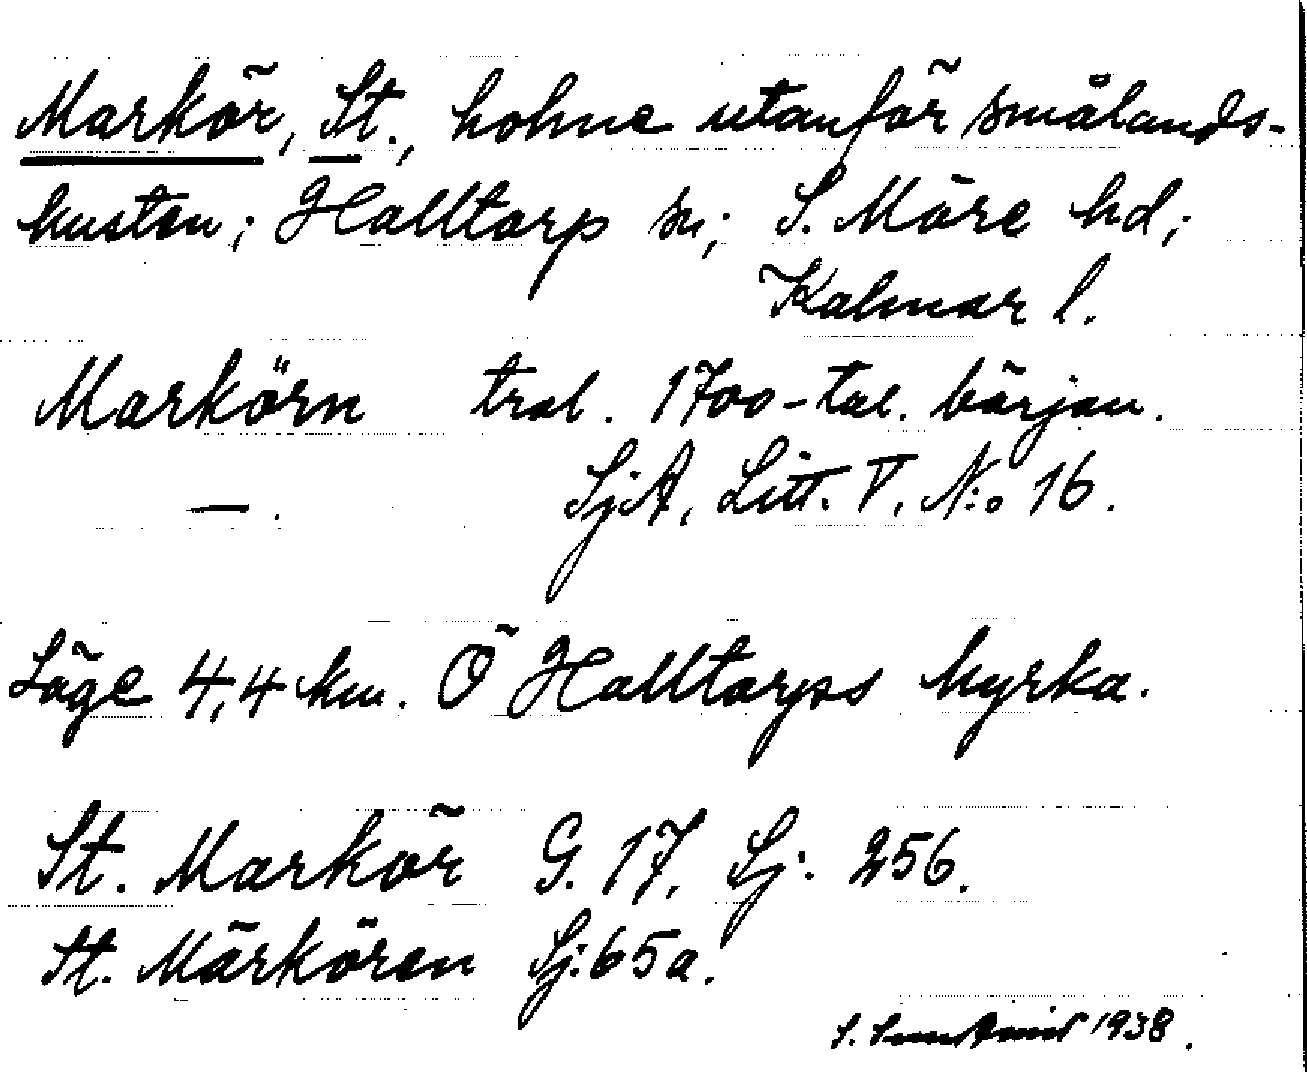 Markör, St., holme utanför smålands-
kusten; Halltorp sn; S. Möre hd;
Kalmar l.
Markörn trol. 1700-tal. början.
— . SjA, Litt. V, N:o 16.
Läge 4,4 km. Ö Halltorps kyrka.
St. Markör G. 17, Sj. 256.
St. Märkören Sj: 65a.
S. 1938.